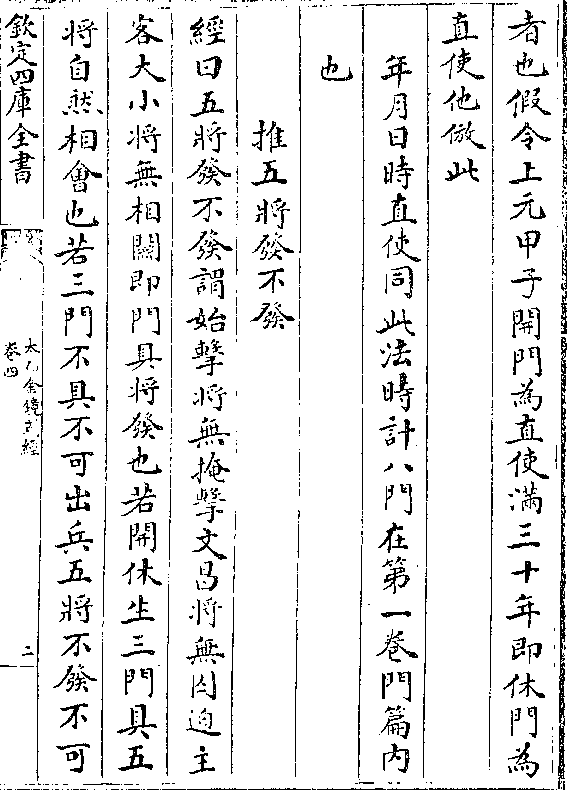 者也假令上元甲子開門為直使滿三十年即休門為
直使他倣此
年月日時直使同此法時計八門在第一卷門篇內
也
推五將發不發
經曰五將發不發謂始擊將無掩擊文昌將無囚迫主
客大小將無相關即門具將發也若開休生三門具五
將自然相會也若三門不具不可出兵五將不發不可
欽定四庫全書
太乙金鏡式經
卷四
二